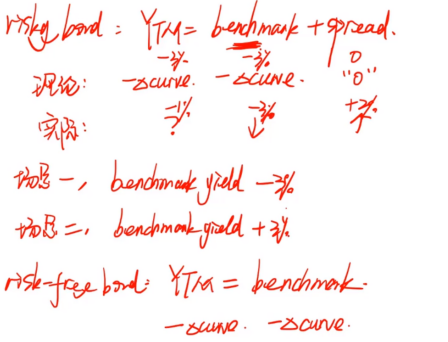 risky bond: YTM = benchmark + spread.
-3% -3% 0
理论: -△curve. -△curve. "0"
实际: -1% -3% ↓ +2% ↑
场景一, benchmark yield -3%
场景二, benchmark yield +3%
risk-free bond: YTM = benchmark.
-△curve. -△curve.